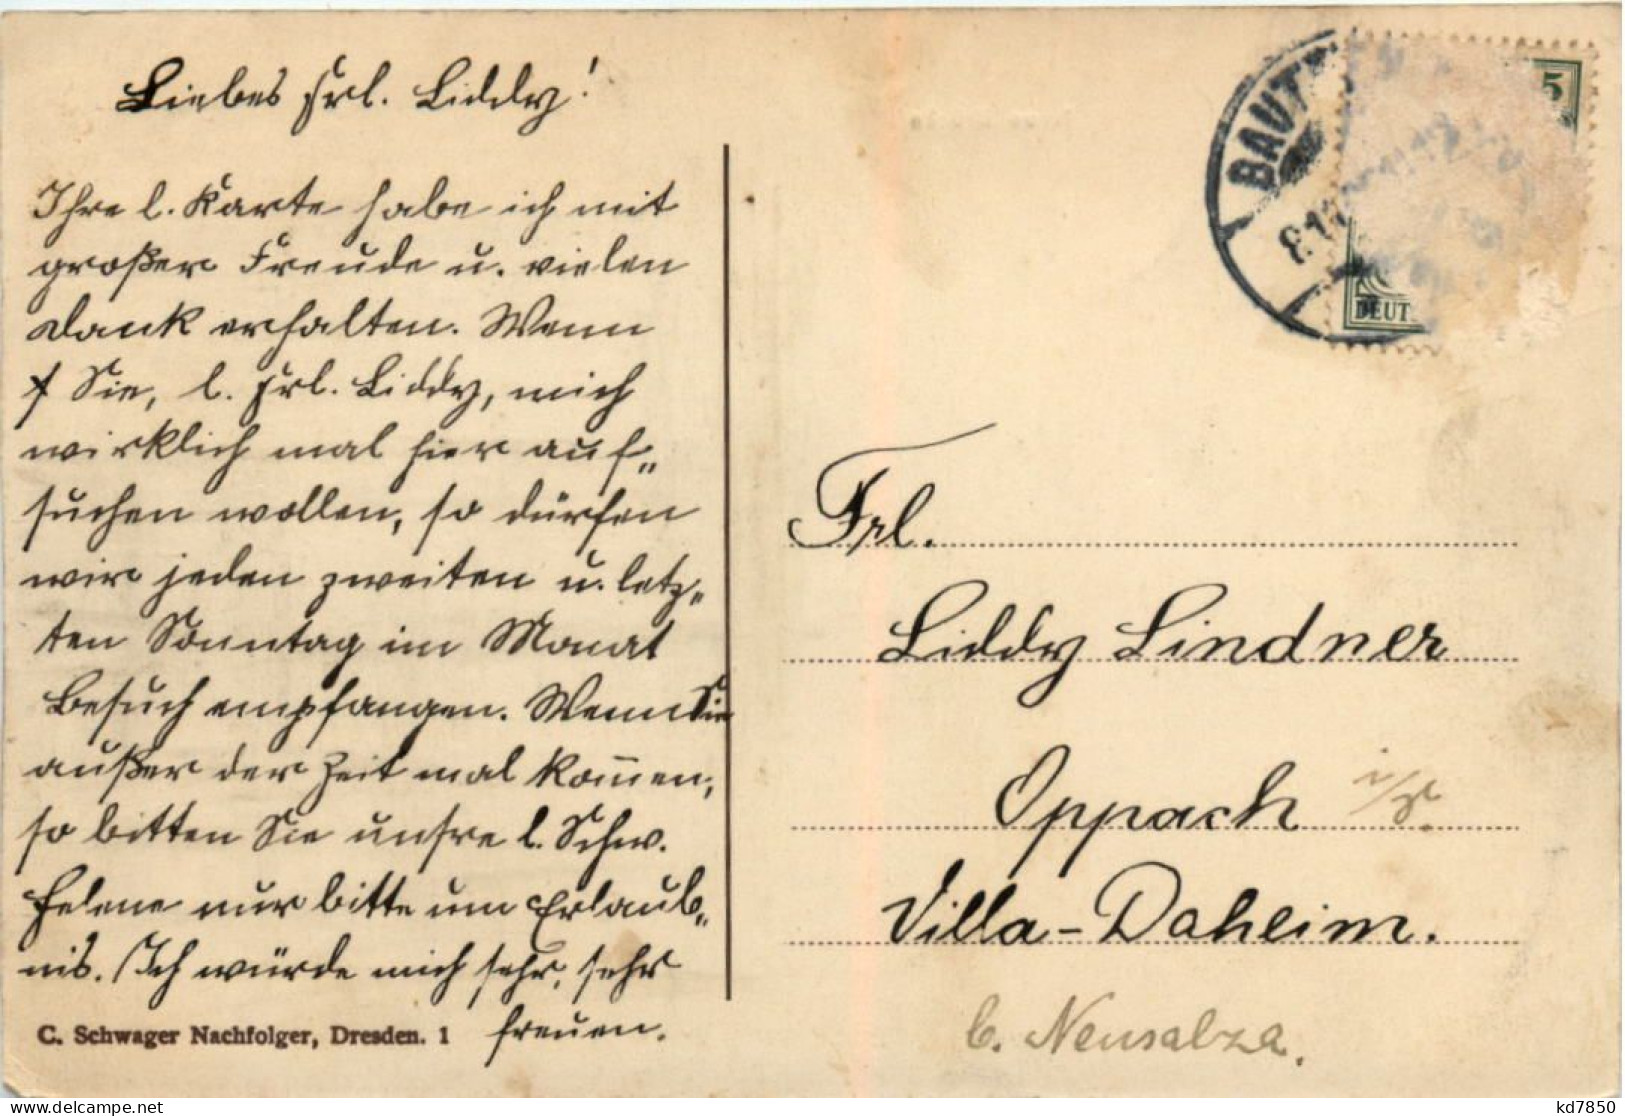 Liebes Frl. Liddy!
Ihre l. Karte habe ich mit
großer Freude u. vielen
Dank erhalten. Wenn
Sie, l. Frl. Liddy, mich
wirklich mal hier auf„
suchen wollen, so dürfen
wir jeden zweiten u. letz„
ten Sonntag im Monat
Besuch empfangen. Wenn Sie
außer der Zeit mal kom̅en,
so bitten Sie unsre l. Schw.
Helene nur bitte um Erlaub„
nis. Ich würde mich sehr, sehr
freuen.
C. Schwager Nachfolger, Dresden. 1
BAUT
5
DEUT
Frl.
Liddy Lindner
Oppach i/S.
Villa-Daheim.
b. Neusalza.
kd7850